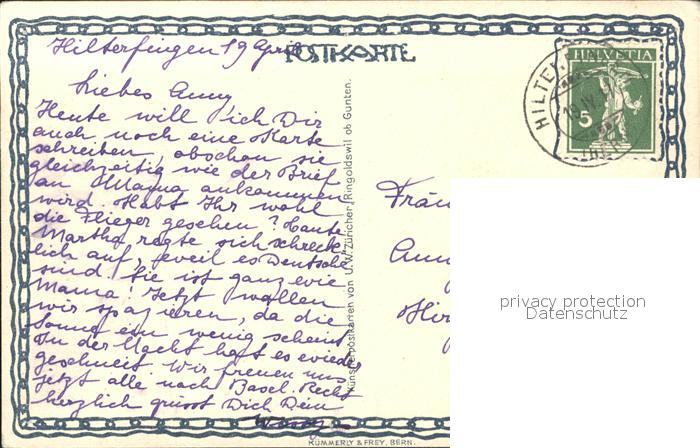 Hilterfingen 19 April
POSTKARTE
Liebes Anny
Heute will ich Dir
auch noch eine Karte
schreiben, obschon sie
gleichzeitig wie der Brief
an Mama ankommen
wird. Habt Ihr wohl
die Flieger gesehen? Tante
Martha regte sich schreck
lich auf, weil es Deutsche
sind. Sie ist ganz wie
Mama! Jetzt wollen
wir spazieren, da die
Sonne ein wenig scheint
In der Nacht hat es wieder
geschneit. Wir freuen uns
jetzt alle nach Basel. Recht
herzlich grüsst Dich Dein
Künstlerpostkarten von U. W. Züricher, Ringoldswil ob Gunten.
KÜMMERLY & FREY, BERN.
HELVETIA
5
HILTE
Fräu
Ann
privacy protection
Datenschutz